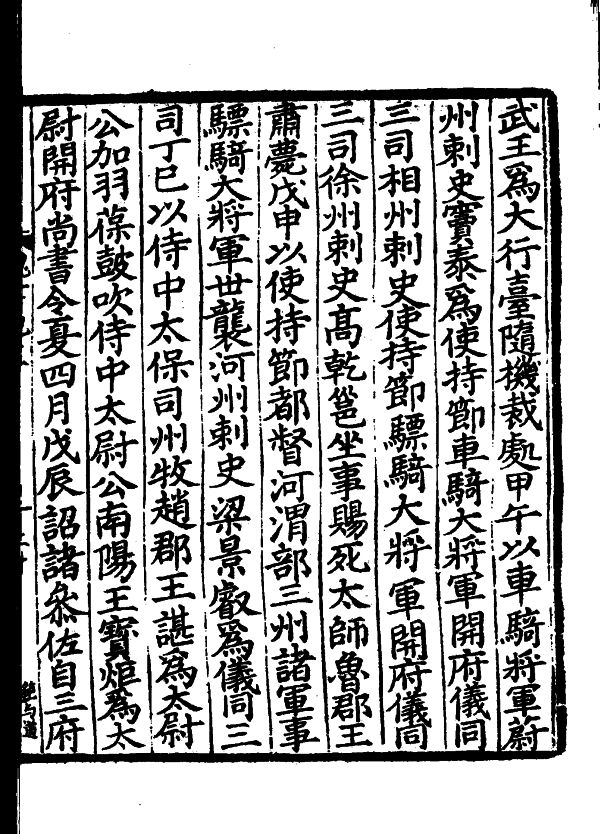 武王爲大行臺隨機裁處甲午以車騎將軍蔚
州刺史竇泰爲使持節車騎大將軍開府儀同
三司相州刺史使持節驃騎大將軍開府儀同
三司徐州刺史高乾邕坐事賜死太師魯郡王
肅薨戊申以使持節都督河渭部三州諸軍事
驃騎大將軍世襲河州刺史梁景叡爲儀同三
司丁巳以侍中太保司州牧趙郡王諶爲太尉
公加羽葆鼓吹侍中太尉公南陽王寶炬爲太
尉開府尚書令夏四月戊辰詔諸叅佐自三府